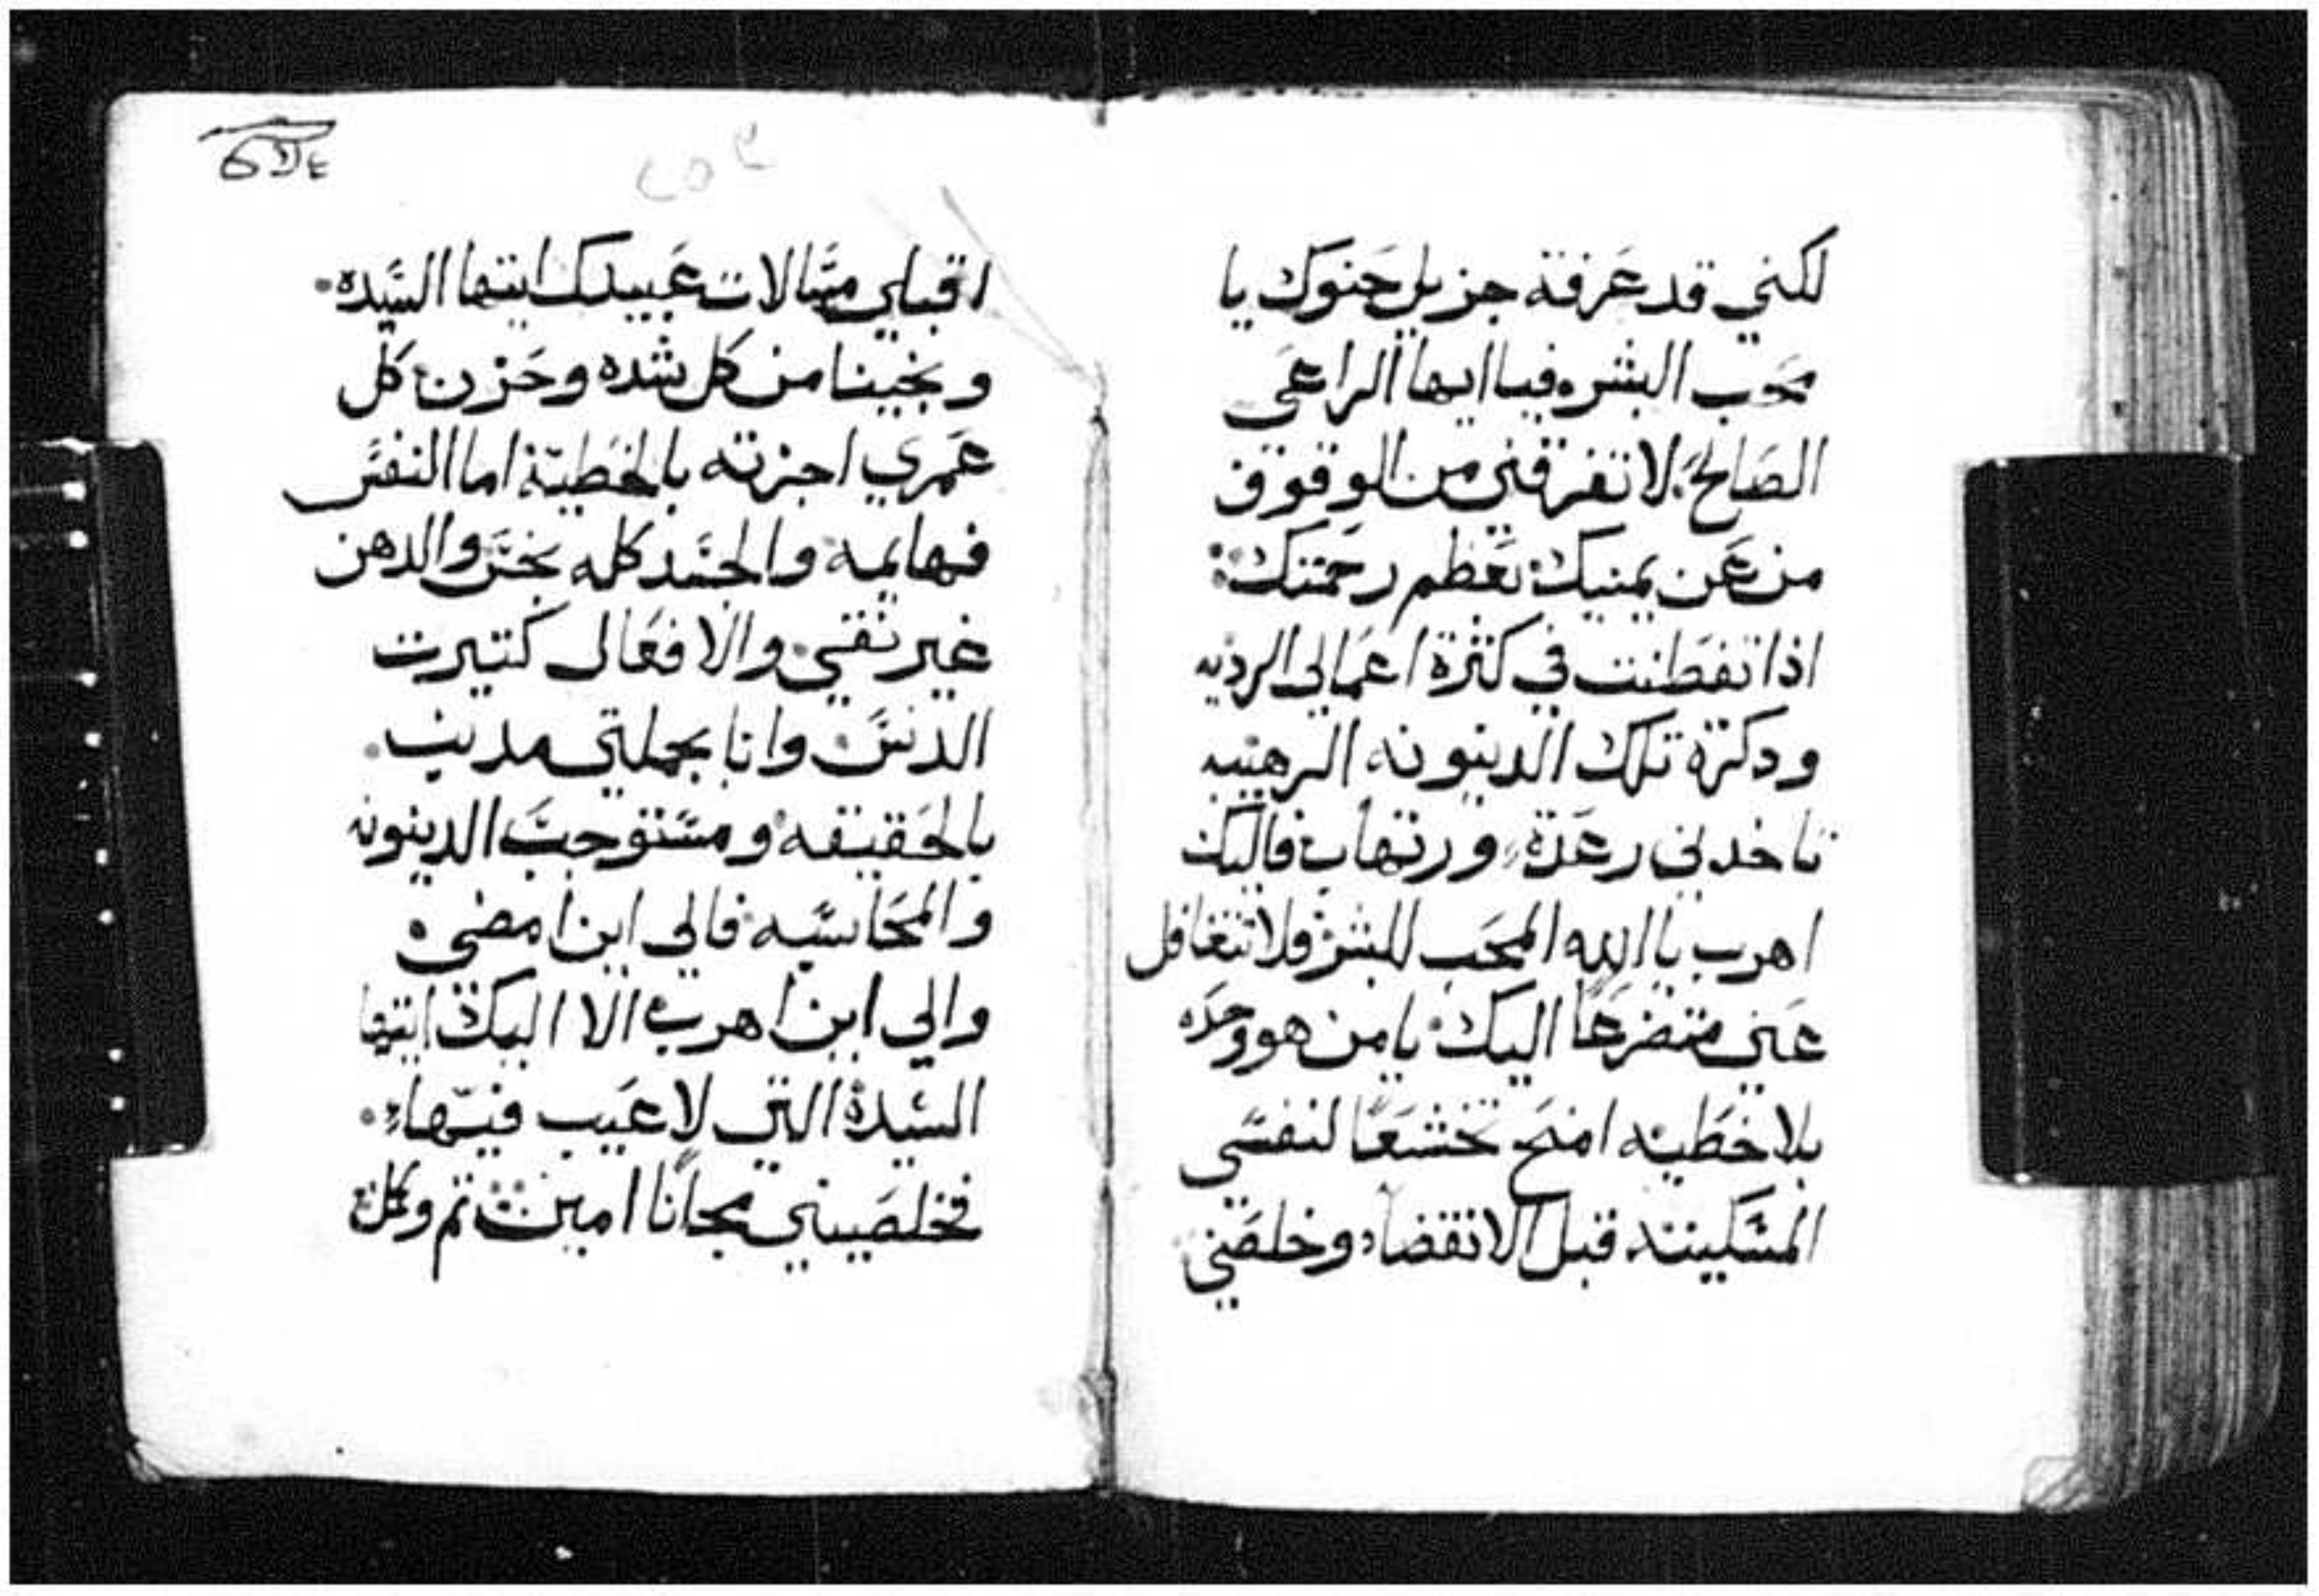 لكني قد عرفة جزيل حنوك يا
محب البشر فيا ايها الراعي
الصالح لا تفرقني من الوقوف
من عن يمنيك بعظم رحمتك
اذا تفطنت في كثرة اعمالي الرديه
ودكرة تلك الدينونه الرهيبه
تاخدني رعدة ورتهاب فاليك
اهرب يا الله المحب للبشر فلا تتغافل
عني متضرعا اليك يا من هو وحده
بلا خطيه امنح تخشعا لنفسي
المسكينه قبل الانقضاء وخلصني
اقبلي مسالات عبيدك ايتها السيده
ونجينا من كل شده وحزن كل
عمري اجزته بالخطية اما النفس
فهايمه والجسد كله نجس والدهن
غير نقي والافعال كتيرت
الدنس وانا بجملتي مدنب
بالحقيقه ومستوجب الدينونه
والمحاسبه فالي اين امضي
والي اين اهرب الا اليك ايتها
السيدة التي لا عيب فيها
فخلصيني مجانا امين تم وكمل